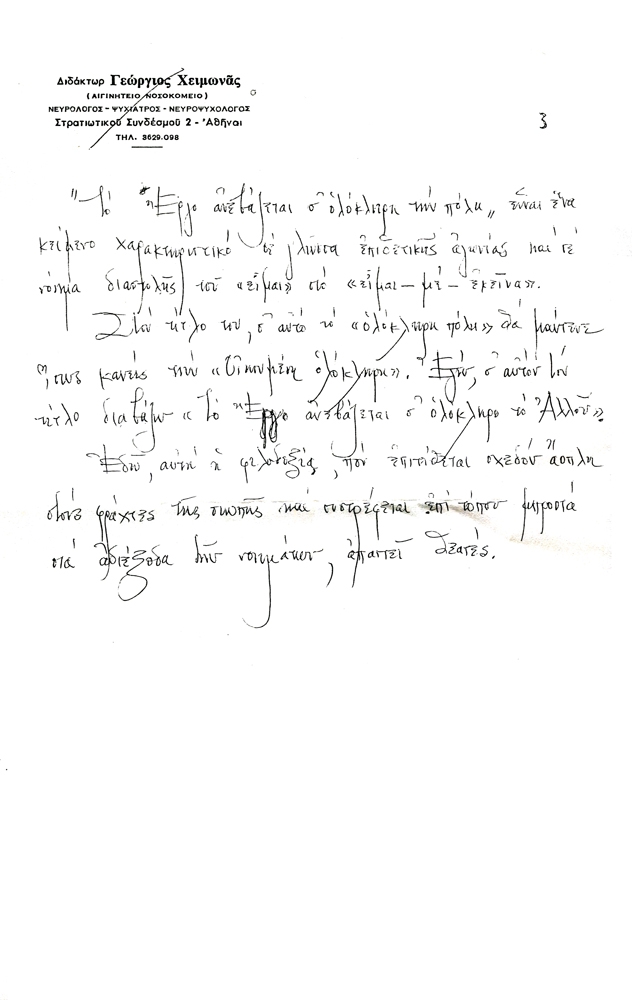 Διδάκτωρ Γεώργιος Χειμωνᾶς
(ΑΙΓΙΝΗΤΕΙΟ ΝΟΣΟΚΟΜΕΙΟ)
ΝΕΥΡΟΛΟΓΟΣ - ΨΥΧΙΑΤΡΟΣ - ΝΕΥΡΟΨΥΧΟΛΟΓΟΣ
Στρατιωτικοῦ Συνδέσμου 2 - Ἀθῆναι
ΤΗΛ. 3629.098
3
"Τό Ἔργο ἀνεβάζεται σ' ὁλόκληρη τήν πόλη„ εἶναι ἕνα
κείμενο χαρακτηριστικό σέ γλῶσσα ἐπιθετικῆς ἀγωνίας καί σέ
νόημα διαστολῆς τοῦ «εἶμαι» στό «εἶμαι - μέ - ἐκεῖνα».
Στόν τίτλο του, σ' αὐτό τό «ὁλόκληρη πόλη» θά μάντευε
ἴσως κανείς τήν «Οἰκουμένη ὁλόκληρη». Ἐγώ, σ' αὐτόν τόν
τίτλο διαβάζω «Τό Ἔργο ἀνεβάζεται σ' ὁλόκληρο τό Ἀλλοῦ».
Ἐδῶ, αὐτή ἡ φιλοδοξία, πού ἐπιτίθεται σχεδόν ἄοπλη
στούς φράχτες τῆς σιωπῆς καί συστρέφεται ἐπί τόπου μπροστά
στά ἀδιέξοδα τῶν νοημάτων, ἀπαιτεῖ θεατές.